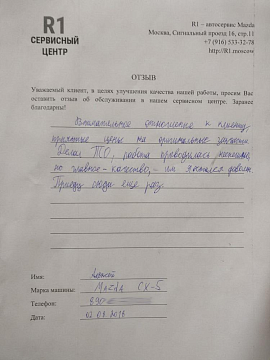 R1
СЕРВИСНЫЙ
ЦЕНТР
R1 – автосервис Mazda
Москва, Сигнальный проезд 16, стр.11
+7 (916) 533-32-78
http://R1.moscow
ОТЗЫВ
Уважаемый клиент, в целях улучшения качества нашей работы, просим Вас
оставить отзыв об обслуживании в нашем сервисном центре. Заранее
благодарны!
Внимательное отношение к клиенту,
приятные цены на оригинальные запчасти.
Делал ТО, работа проводилась
но главное - качество, - им я остался доволен.
Приеду сюда еще раз.
Имя:
Марка машины: Mazda CX-5
Телефон: 890
Дата: 02.09.2018